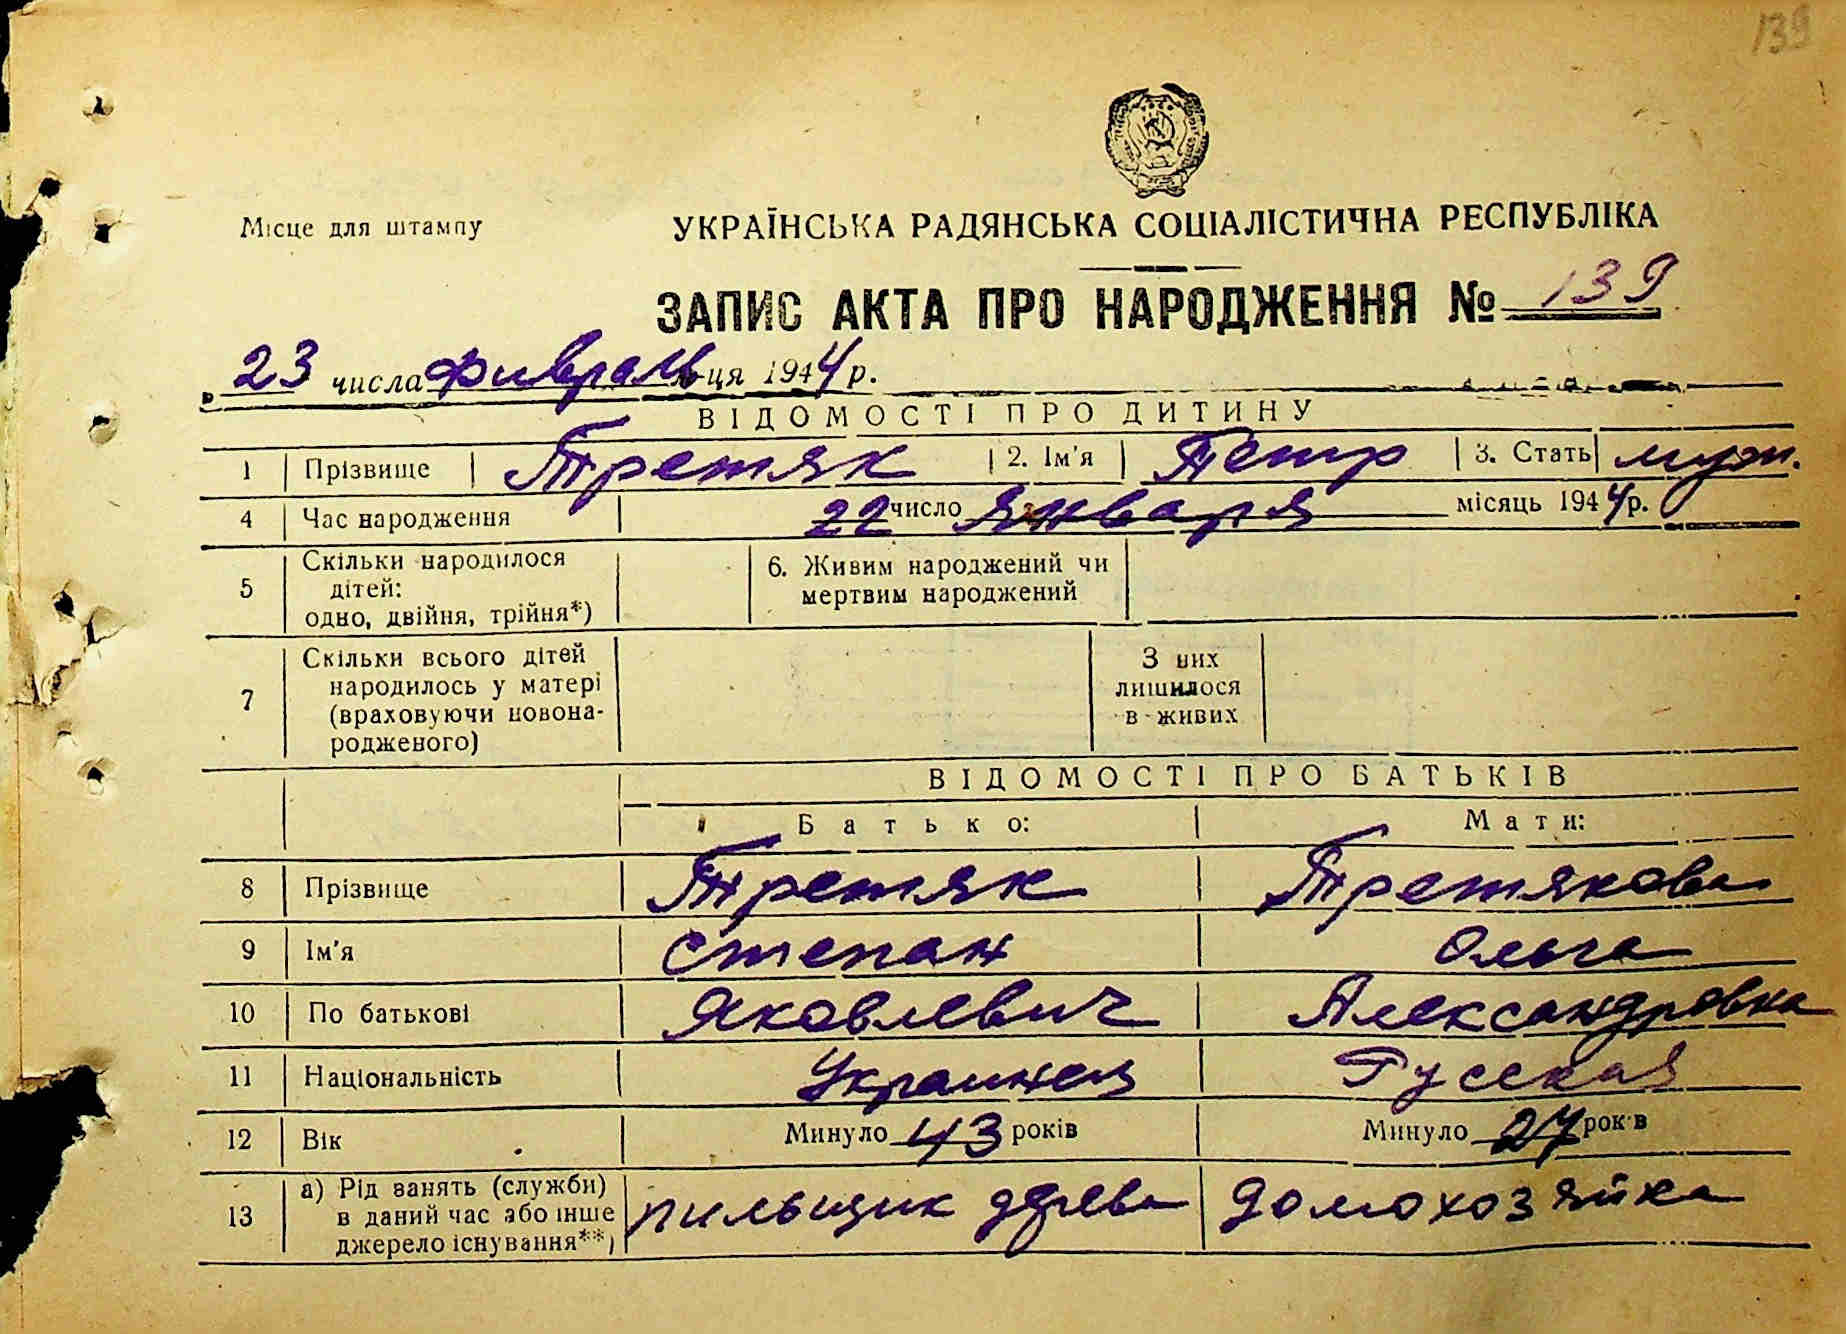 139
Місце для штампу
УКРАЇНСЬКА РАДЯНСЬКА СОЦІАЛІСТИЧНА РЕСПУБЛІКА
ЗАПИС АКТА ПРО НАРОДЖЕННЯ № 139
23 числа Фивраль м-ця 1944 р.
ВІДОМОСТІ ПРО ДИТИНУ
1 Прізвище Третяк 2. Ім'я Петр 3. Стать муж.
4 Час народження 22 число Января місяць 1944 р.
5 Скільки народилося дітей: одно, двійня, трійня*) 6. Живим народжений чи мертвим народжений
7 Скільки всього дітей народилось у матері (враховуючи новонародженого) З них лишилося в живих
ВІДОМОСТІ ПРО БАТЬКІВ
Батько: Мати:
8 Прізвище Третяк Третякова
9 Ім'я Степан Ольга
10 По батькові Яковлевич Александровна
11 Національність Украинец Русская
12 Вік Минуло 43 років Минуло 27 років
13 а) Рід занять (служби) в даний час або інше джерело існування**) пильщик древа домохозяйка